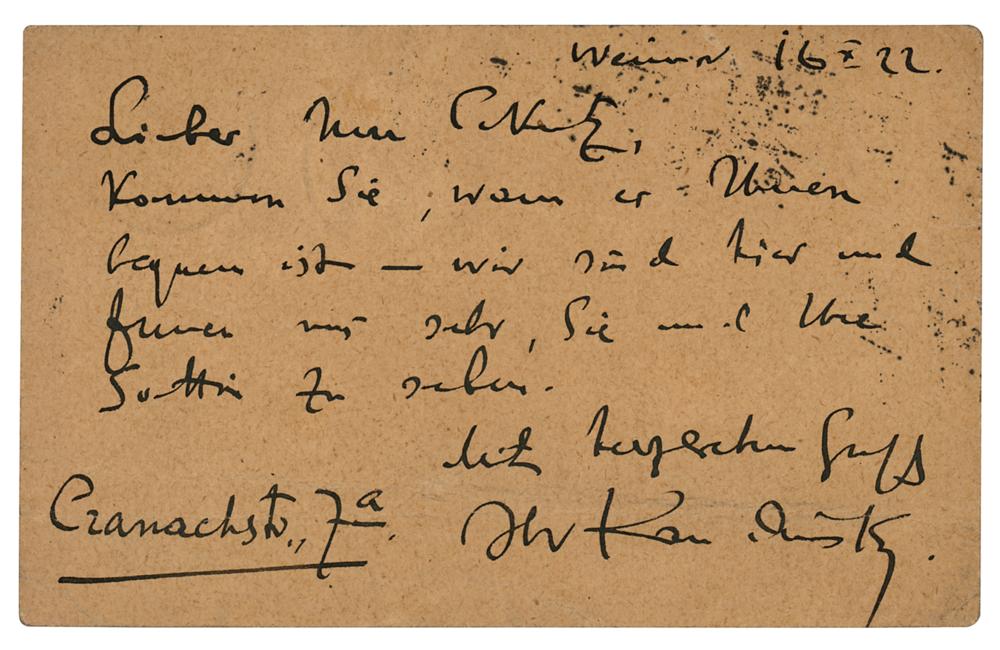 Weimar 16 X 22.
Lieber Herr
Kommen Sie, wann es Ihnen
bequem ist — wir sind hier und
freuen uns sehr, Sie und Ihre
Gattin zu sehen.
Mit herzlichem Gruß
Cranachstr., 7a. Ihr Kandinsky.